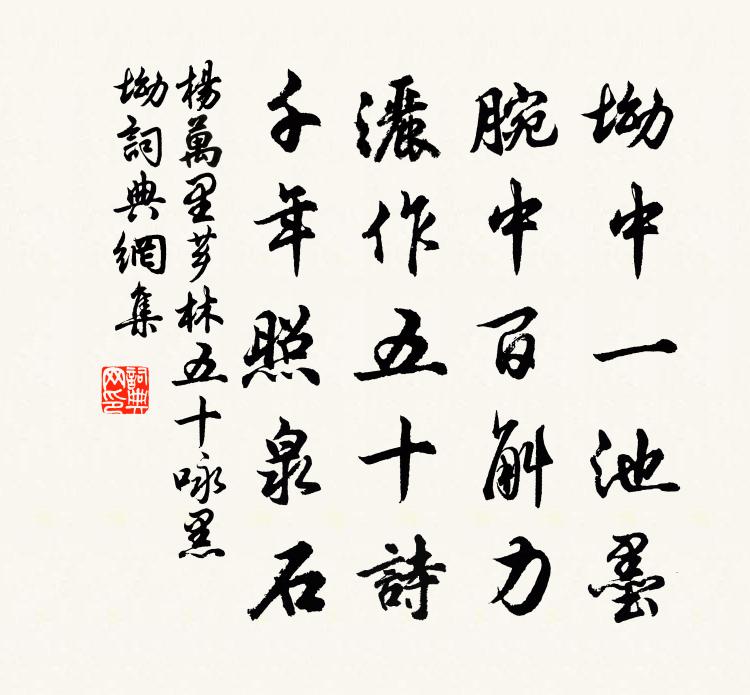 坳中一池墨
腕中百斛力
灑作五十詩
千年照泉石
楊萬里芗林五十咏黑
坳詞典網集
詞典
网印